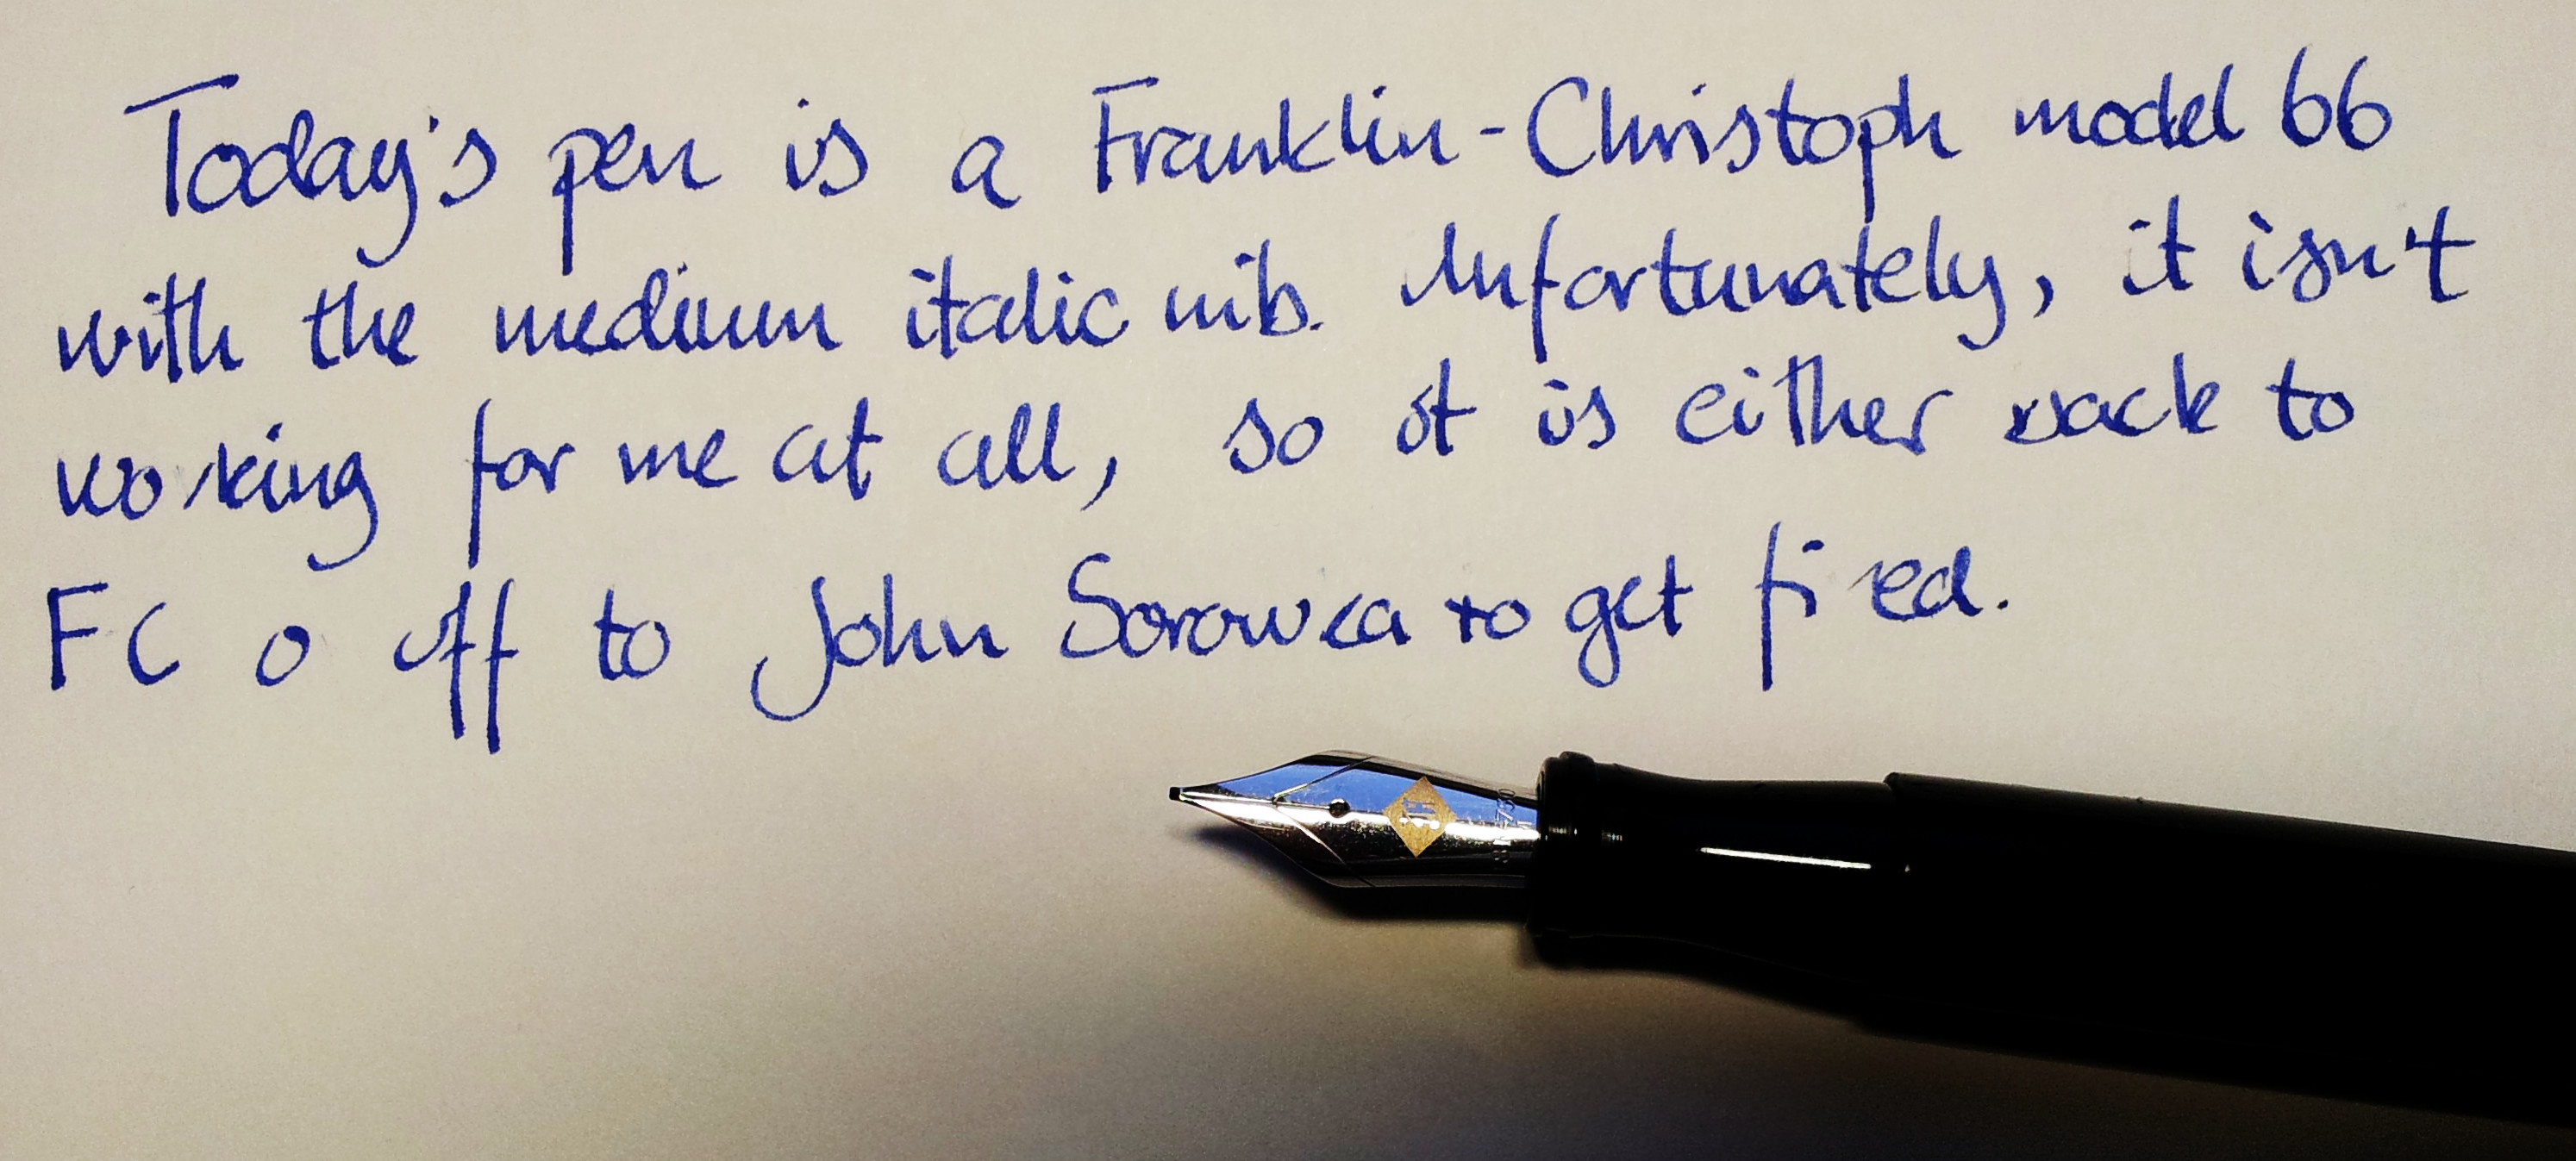 Today's pen is a Franklin-Christoph model 66
with the medium italic nib. Unfortunately, it isn't
working for me at all, so it is either back to
FC o off to John Sorowka to get fi ed.